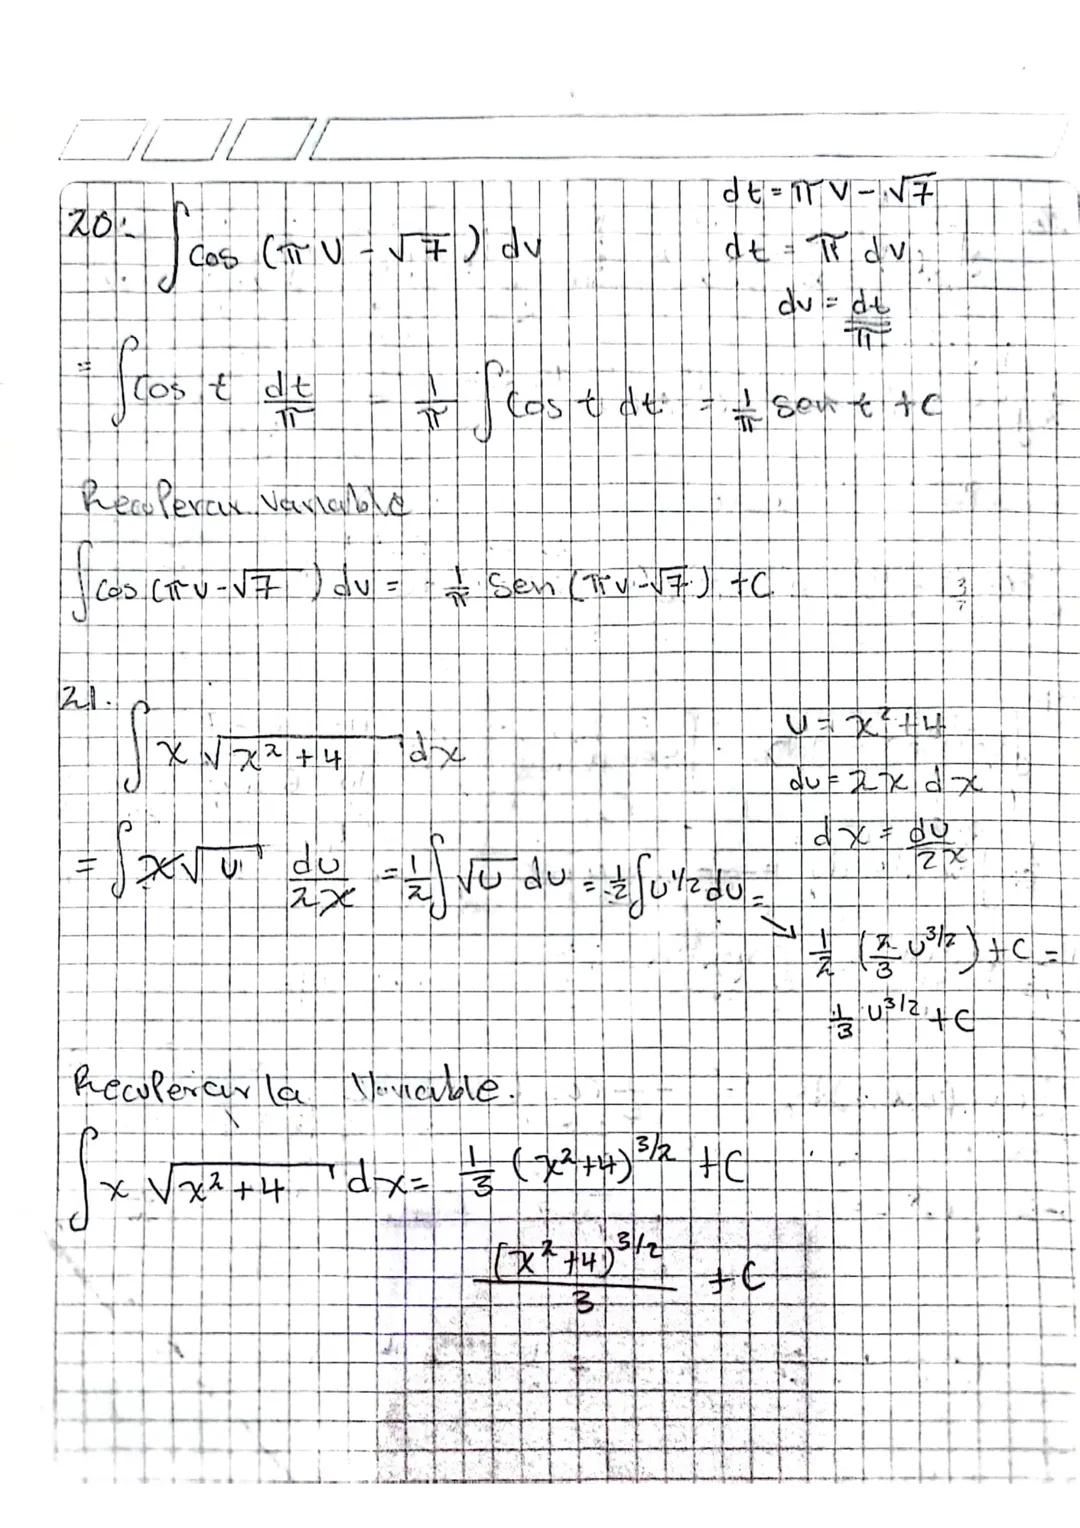 20. ∫ cos (π v - √7) dv
dt = π v - √7
dt = π dv
dv = dt/π
= ∫ cos t dt/π = 1/π ∫ cos t dt = 1/π sen t + C
Recuperar variable
∫ cos (π v - √7) dv = 1/π sen (π v - √7) + C
21. ∫ x √x² + 4 dx
u = x² + 4
du = 2x dx
dx = du/2x
= ∫ x √u du/2x = 1/2 ∫ √u du = 1/2 ∫ u^1/2 du =
→ 1/2 (2/3 u^3/2) + C =
1/3 u^3/2 + C
Recuperar la Variable.
∫ x √x² + 4 dx = 1/3 (x² + 4)^3/2 + C
(x² + 4)^3/2 / 3 + C